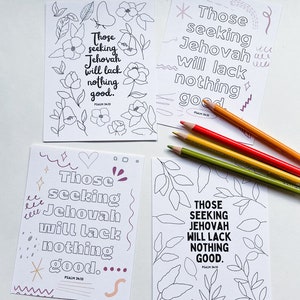 Those
seeking
Jehovah
will lack
nothing
good.
PSALM 34:10
Those
seeking
Jehovah
will lack
nothing
good.
PSALM 34:10
Those
seeking
Jehovah
will lack
nothing
good.
PSALM 34:10
THOSE
SEEKING
JEHOVAH
WILL LACK
NOTHING
GOOD.
PSALM 34:10